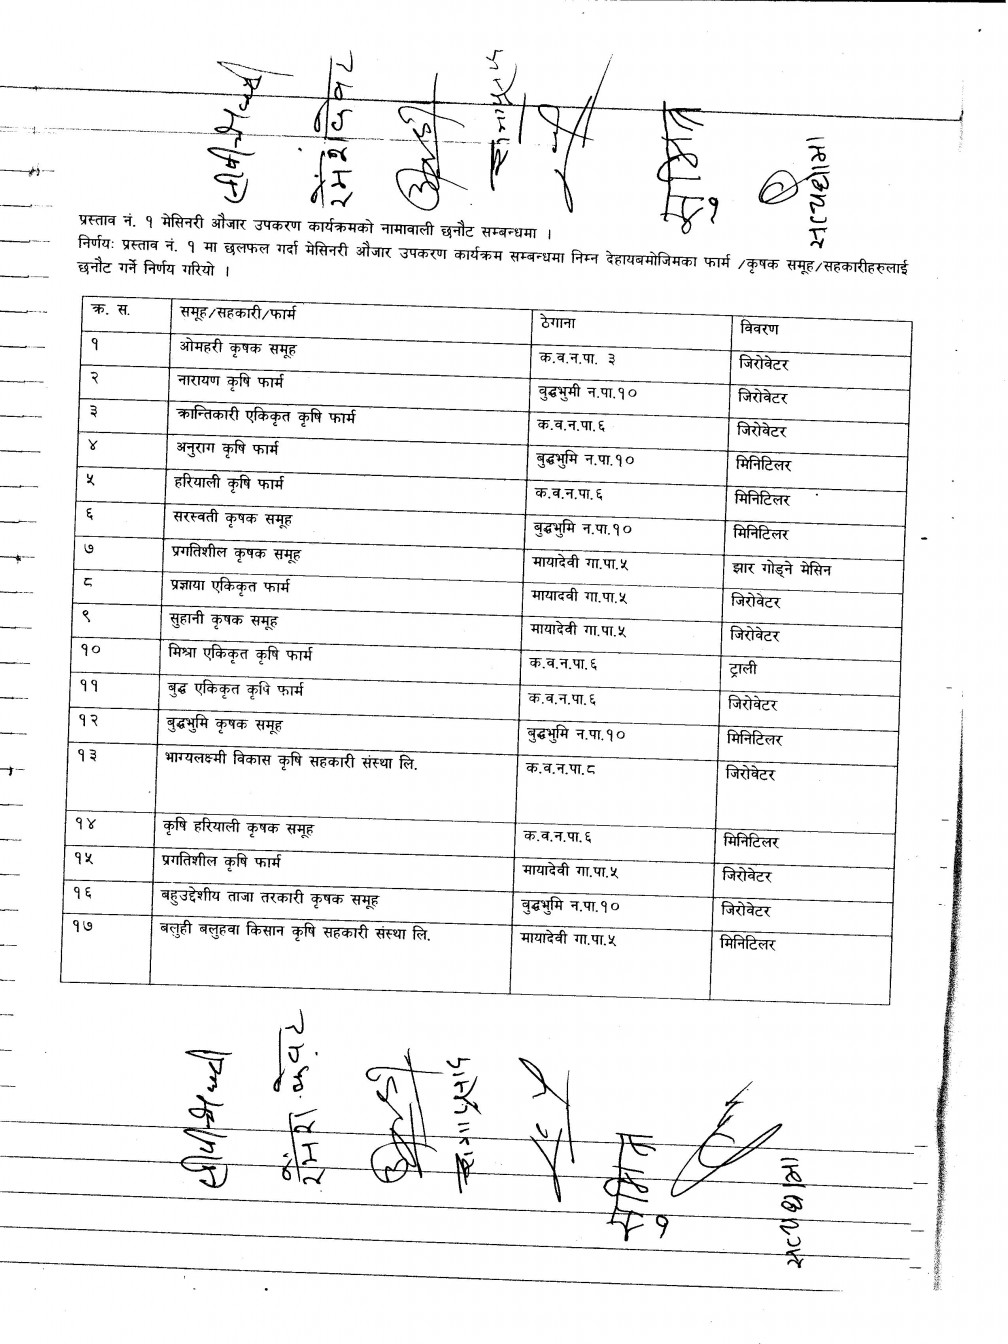 प्रस्ताव नं. १ मेसिनरी औजार उपकरण कार्यक्रमको नामावाली छनौट सम्बन्धमा ।
निर्णयः प्रस्ताव नं. १ मा छलफल गर्दा मेसिनरी औजार उपकरण कार्यक्रम सम्बन्धमा निम्न देहायबमोजिमका फार्म /कृषक समूह/सहकारीहरुलाई
छनौट गर्ने निर्णय गरियो ।
क्र. स. समूह/सहकारी/फार्म ठेगाना विवरण
१ ओमहरी कृषक समूह क.व.न.पा. ३ जिरोवेटर
२ नारायण कृषि फार्म बुद्धभुमी न.पा.१० जिरोवेटर
३ क्रान्तिकारी एकिकृत कृषि फार्म क.व.न.पा.६ जिरोवेटर
४ अनुराग कृषि फार्म बुद्धभुमि न.पा.१० मिनिटिलर
५ हरियाली कृषि फार्म क.व.न.पा.६ मिनिटिलर
६ सरस्वती कृषक समूह बुद्धभुमि न.पा.१० मिनिटिलर
७ प्रगतिशील कृषक समूह मायादेवी गा.पा.५ झार गोड्ने मेसिन
८ प्रज्ञाया एकिकृत फार्म मायादवी गा.पा.५ जिरोवेटर
९ सुहानी कृषक समूह मायादेवी गा.पा.५ जिरोवेटर
१० मिश्रा एकिकृत कृषि फार्म क.व.न.पा.६ ट्राली
११ बुद्ध एकिकृत कृषि फार्म क.व.न.पा.६ जिरोवेटर
१२ बुद्धभुमि कृषक समूह बुद्धभुमि न.पा.१० मिनिटिलर
१३ भाग्यलक्ष्मी विकास कृषि सहकारी संस्था लि. क.व.न.पा.८ जिरोवेटर
१४ कृषि हरियाली कृषक समूह क.व.न.पा.६ मिनिटिलर
१५ प्रगतिशील कृषि फार्म मायादेवी गा.पा.५ जिरोवेटर
१६ बहुउद्देशीय ताजा तरकारी कृषक समूह बुद्धभुमि न.पा.१० जिरोवेटर
१७ बलुही बलुहवा किसान कृषि सहकारी संस्था लि. मायादेवी गा.पा.५ मिनिटिलर